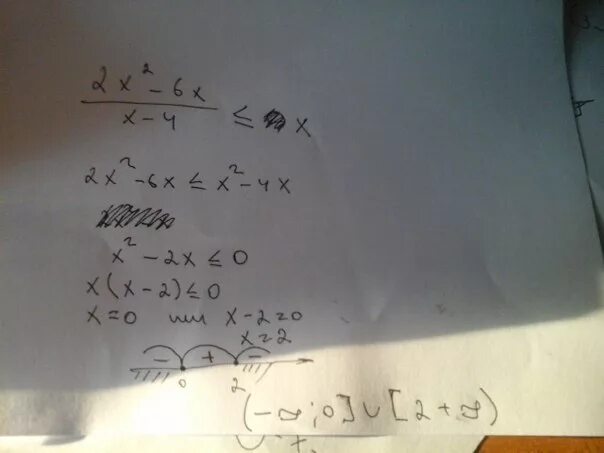 2x² - 6x
x - 4
≤ x
2x² - 6x ≤ x² - 4x
x² - 2x ≤ 0
x(x - 2) ≤ 0
x = 0 или x - 2 = 0
x = 2
- + -
0 2
(-∞; 0] ∪ [2 + ∞)